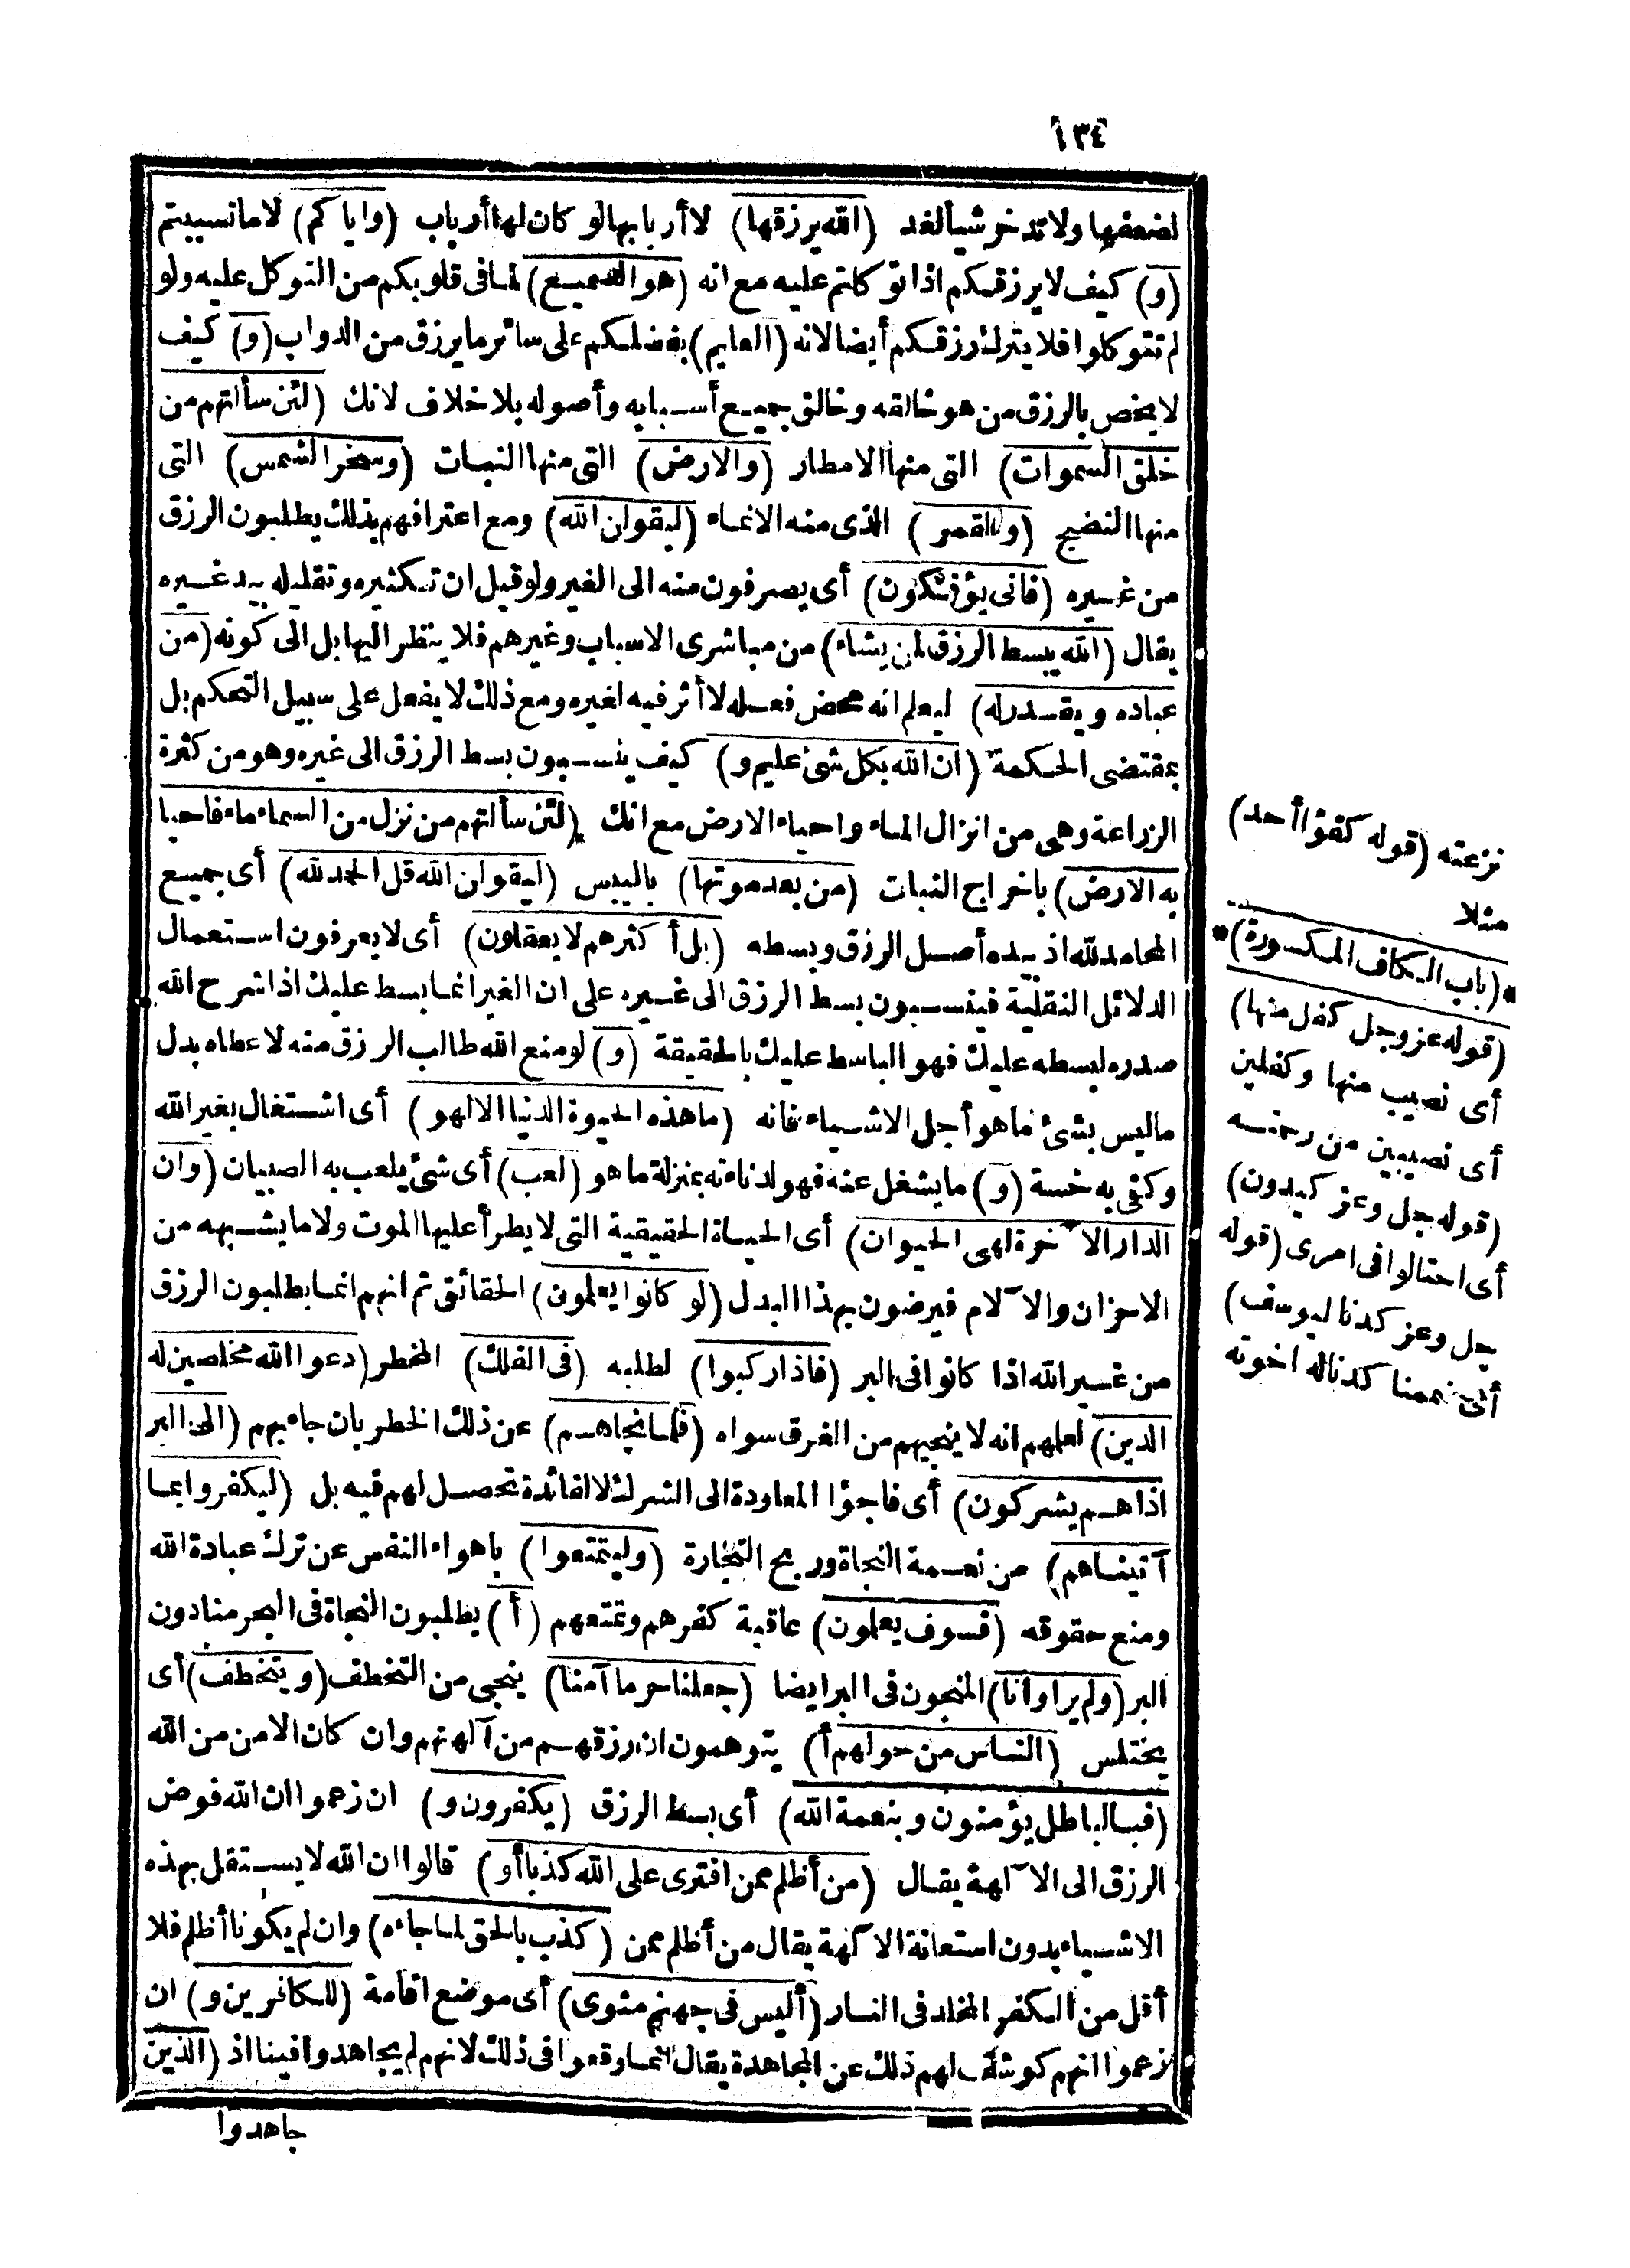 ١٣٤
لضعفها ولا تدخر شيأ لغد (الله يرزقها) لا أربابها لو كان لها أرباب (واياكم) لا ما تسببتم
(و) كيف لا يرزقكم اذا توكلتم عليه مع انه (هو السميع) لما فى قلوبكم من التوكل عليه ولو
لم تتوكلوا فلا يترك رزقكم أيضا لانه (العليم) بفضلكم على سائر ما يرزق من الدواب (و) كيف
لا يخص بالرزق من هو خالقه وخالق جميع أسبابه وأصوله بلا خلاف لانك (لئن سألتهم من
خلق السموات) التى منها الامطار (والارض) التى منها النبات (وسخر الشمس) التى
منها النضج (والقمر) الذى منه الانماء (ليقولن الله) ومع اعترافهم بذلك يطلبون الرزق
من غيره (فانى يؤفكون) أى يصرفون منه الى الغير ولو قيل ان تكثيره وتقليله بيد غيره
يقال (الله يبسط الرزق لمن يشاء) من مباشرى الاسباب وغيرهم فلا ينظر اليها بل الى كونه (من
عباده ويقدر له) ليعلم انه محض فعله لا أثر فيه لغيره ومع ذلك لا يفعل على سبيل التحكم بل
بمقتضى الحكمة (ان الله بكل شئ عليم و) كيف ينسبون بسط الرزق الى غيره وهو من كثرة
الزراعة وهى من انزال الماء واحياء الارض مع انك (لئن سألتهم من نزل من السماء ماء فاحيا
به الارض) باخراج النبات (من بعد موتها) باليبس (ليقولن الله قل الحمد لله) أى جميع
المحامد لله اذ بيده أصل الرزق وبسطه (بل أكثرهم لا يعقلون) أى لا يعرفون استعمال
الدلائل النقلية فينسبون بسط الرزق الى غيره على ان الغير انما بسط عليك اذا شرح الله
صدره لبسطه عليك فهو الباسط عليك بالحقيقة (و) لو منع الله طالب الرزق منه لاعطاه بدل
ما ليس بشئ ما هو أجل الاشياء فانه (ما هذه الحيوة الدنيا الا لهو) أى اشتغال بغير الله
وكفى به خسة (و) ما يشغل عنه فهو لدناءته بمنزلة ما هو (لعب) أى شئ يلعب به الصبيان (وان
الدار الآخرة لهى الحيوان) أى الحياة الحقيقية التى لا يطرأ عليها الموت ولا ما يشبهه من
الاحزان والآلام فيرضون بهذا البدل (لو كانوا يعلمون) الحقائق ثم انهم انما يطلبون الرزق
من غير الله اذا كانوا فى البر (فاذا ركبوا) لطلبه (فى الفلك) المخطر (دعوا الله مخلصين له
الدين) لعلمهم انه لا ينجيهم من الغرق سواه (فلما نجاهم) عن ذلك الخطر بان جاء بهم (الى البر
اذا هم يشركون) أى فاجؤا المعاودة الى الشرك لا لفائدة تحصل لهم فيه بل (ليكفروا بما
آتيناهم) من نعمة النجاة وربح التجارة (وليتمتعوا) باهواء النفس عن ترك عبادة الله
ومنع حقوقه (فسوف يعلمون) عاقبة كفرهم وتمتعهم (أ) يطلبون النجاة فى البحر منا دون
البر (ولم يروا أنا) المنجون فى البر ايضا (جعلنا حرما آمنا) ينجى من التخطف (ويتخطف) أى
يختلس (الناس من حولهم أ) يتوهمون ان رزقهم من آلهتهم وان كان الامن من الله
(فبالباطل يؤمنون وبنعمة الله) أى بسط الرزق (يكفرون و) ان زعموا ان الله فوض
الرزق الى الآلهة يقال (من أظلم ممن افترى على الله كذبا أو) قالوا ان الله لا يستقل بهذه
الاشياء بدون استعانة الآلهة يقال من أظلم ممن (كذب بالحق لما جاءه) وان لم يكونا أظلم فلا
أقل من الكفر المخلد فى النار (أليس فى جهنم مثوى) أى موضع اقامة (للكافرين و) ان
زعموا انهم كوشف لهم ذلك عن المجاهدة يقال انما وقعوا فى ذلك لانهم لم يجاهدوا فينا اذ (الذين
جاهدوا
نزعته (قوله كفؤا أحد)
مثلا
*(باب الكاف المكسورة)*
(قوله عز وجل كفل منها)
أى نصيب منها وكفلين
أى نصيبين من رحمته
(قوله جل وعز كيدون)
أى احتالوا فى امرى (قوله
جل وعز كدنا ليوسف)
أى كدنا له اخوته